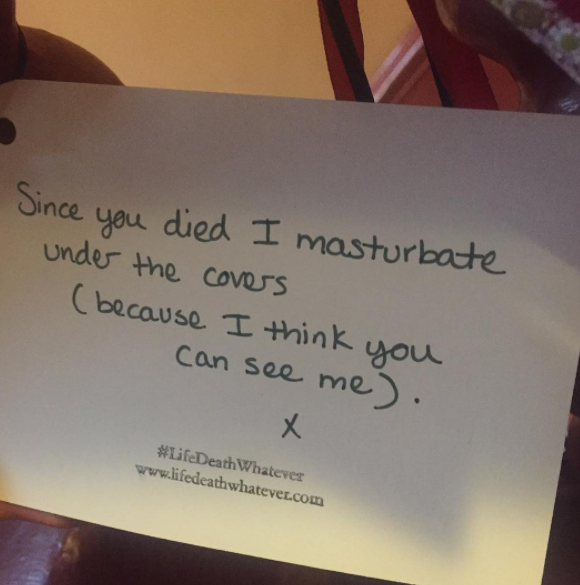 Since you died I masturbate
under the covers
(because I think you
can see me).
x
#LifeDeathWhatever
www.lifedeathwhatever.com